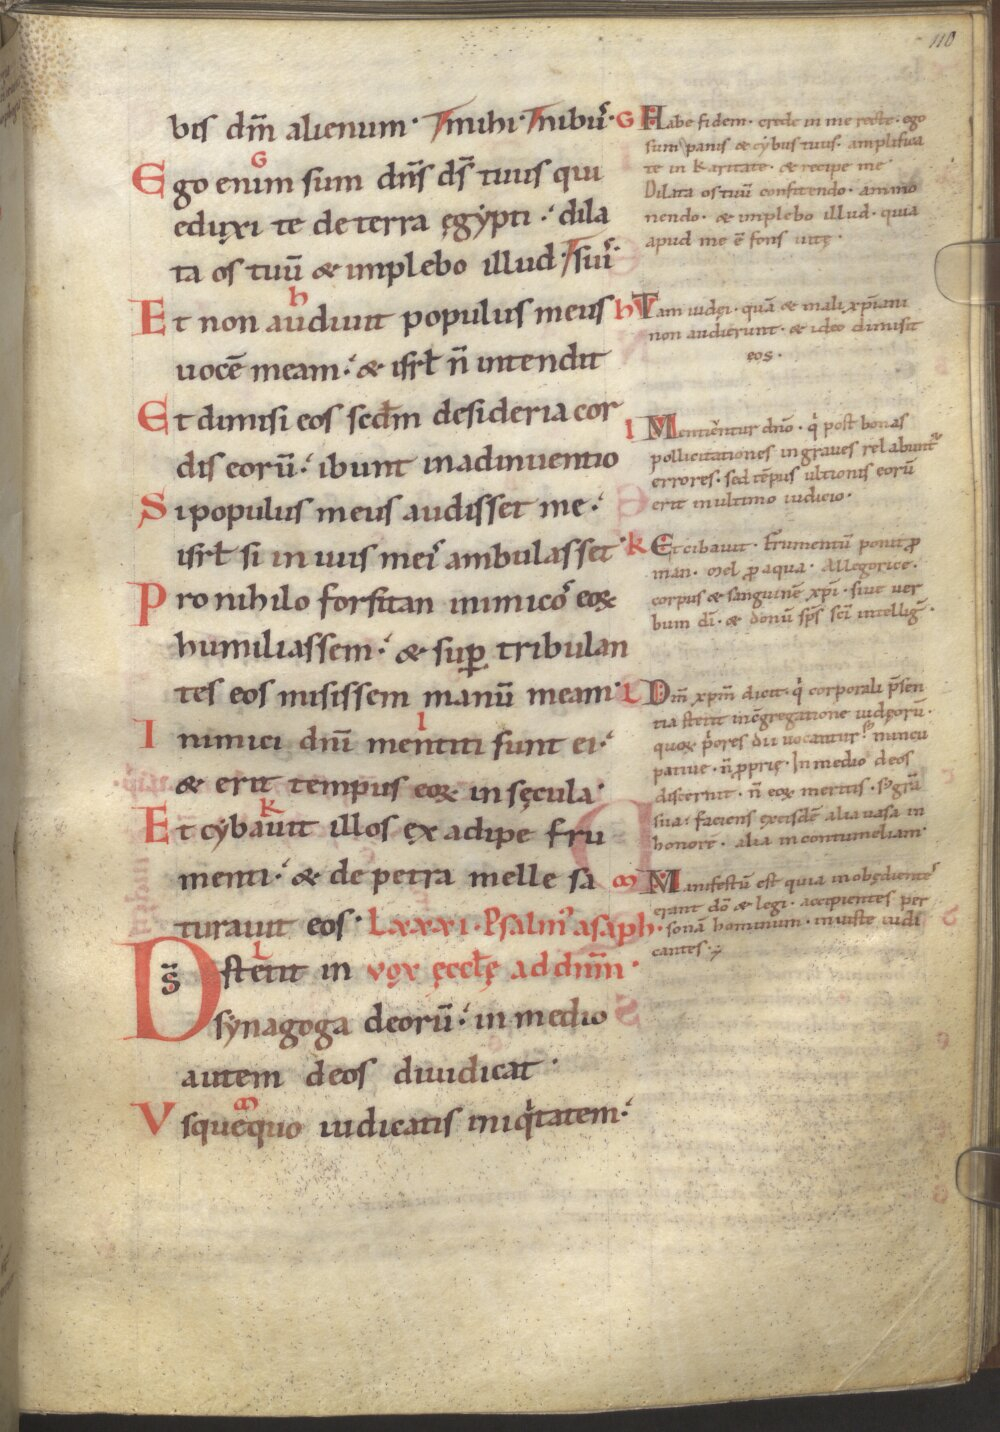 110
bis dm̄ alienum · mihi · nibꝰ ·
Ego enim sum dn̄s ds̄ tuus qui
eduxi te de terra ęgẏpti ·́ dila
ta os tuū & implebo illud ·
Et non audiuit populus meus
uocē meam ·́ & isrl̄ n̄ intendit
Et dimisi eos scd̄m desideria cor
dis eorū ·́ ibunt inadinuentio
Si populus meus audisset me ·́
isrl̄ si in uiis meiſ ambulasset ·
Pro nihilo forsitan inimicoſ eoꝝ
humiliassem ·́ & suꝑ tribulan
tes eos misissem manū meam ·
Inimici dn̄i mentiti sunt ei ·́
& erit tempus eoꝝ insęcula ·
Et cẏbauit illos ęx adipe fru
menti ·́ & de petra melle sa
turauit eos · Lxxxi · Psalmꝰ asaph ·
Ds̄ stetit in vox ęcclę ad dnm̄ ·
sẏnagoga deorū ·́ in medio
autem deos diiudicat ·
Vsquequo iudicatis iniqͥtatem ·́
G Habe fidem · crede in me recte · ego
sum panis & cẏbus tuus · amplifica
te in Karitate · & recipe me
Dilata os tuū confitendo · ammo
nendo · & implebo illud · quia
apud me ē fons uitę ·
h Tam iudęi · quā & mali xp̄iani
non audierunt · & ideo dimisit
eos ·
I Mentiuntur dn̄o · qͥ post bonas
pollicitationes in graues relabunt̄
errores · sed tēpus ultionis eorū
erit in ultimo iudicio ·
k Et cibauit · Frumentū ponit ꝓ
man · mel ꝓ aqua · Allegorice ·
corpus & sanguinē xp̄i · siue uer
bum dī · & donū sp̄s scī intelliḡ ·
L Dm̄ xp̄m dicit · qͥ corporali p̄sen
tia stetit incōgregatione iudęorū ·
quoꝝ pͥores dii uocantur · nuncu
patiue · n̄ ꝓprię · In medio deos
discernit · n̄ eoꝝ meritis · sꝫ grā
sua · faciens ęxeisdē alia uasa in
honorē · alia in contumeliam ·
m Manifestū est quia inobędientes
erant dō & legi · accipientes per
sonā hominum · iniuste iudi
cantes ·